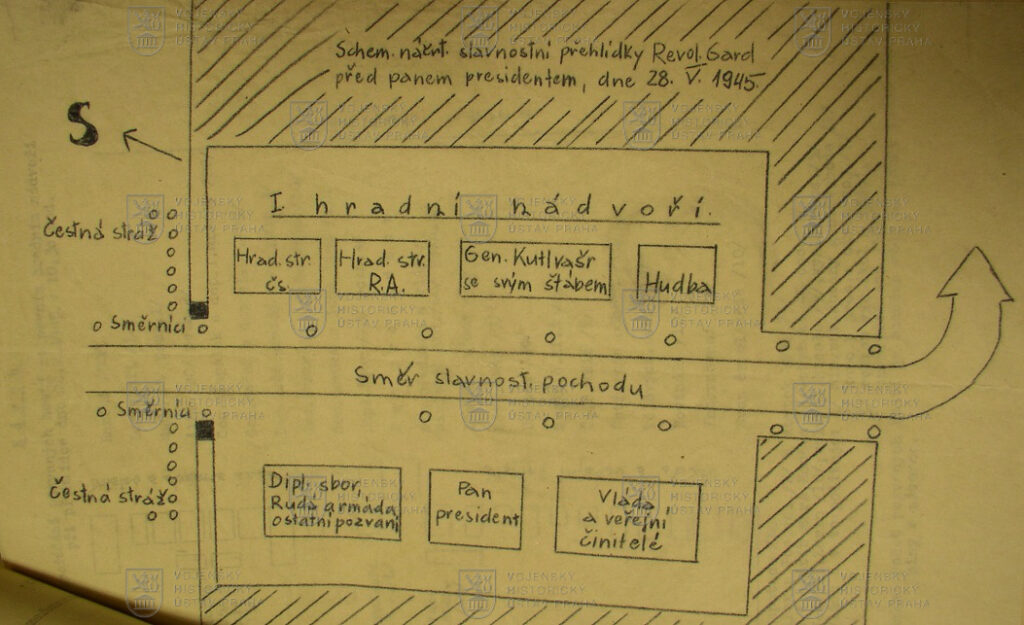 Schem. náčrt. slavnostní přehlídky Revol. Gard
před panem presidentem, dne 28. V. 1945.
S
I hradní nádvoří.
Čestná stráž
Hrad. str.
čs.
Hrad. str.
R.A.
Gen. Kutlvašr
se svým štábem
Hudba
Směrníci
Směr slavnost. pochodu
Směrníci
Čestná stráž
Dipl. sbor,
Rudá armáda,
ostatní pozvaní
Pan
president
Vláda
a veřejní
činitelé
VOJENSKÝ
HISTORICKÝ
ÚSTAV PRAHA